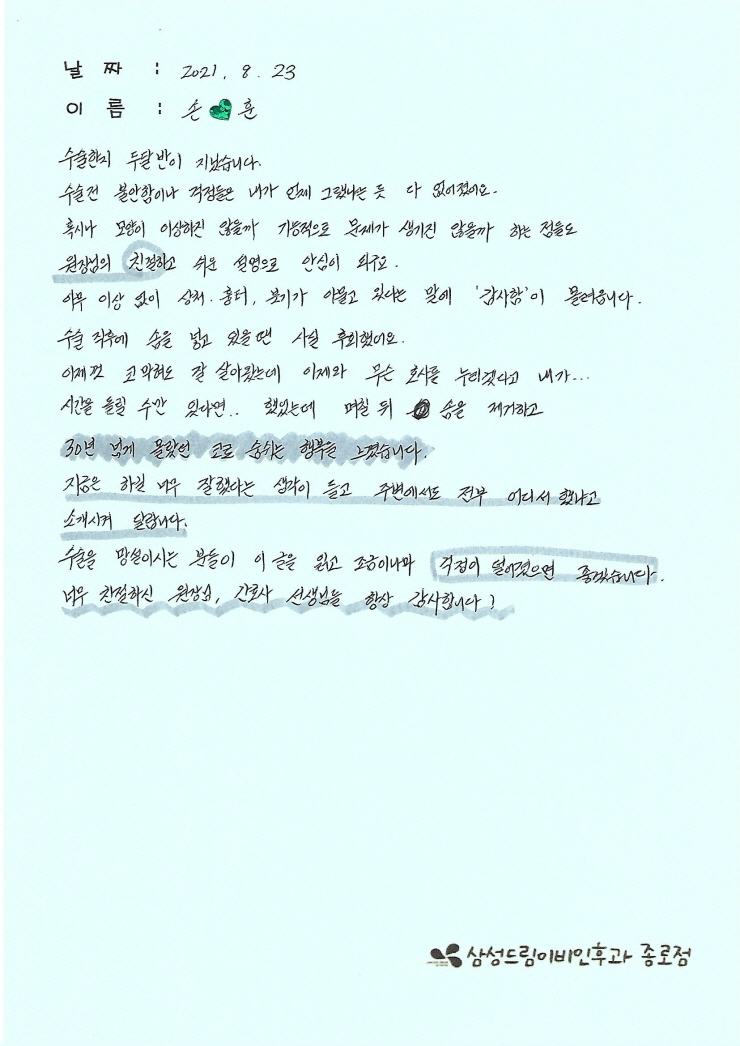 날 짜 : 2021. 8. 23
이 름 : 손 훈
수술한지 두달반이 지났습니다.
수술전 불안함이나 걱정들은 내가 언제 그랬냐는 듯 다 없어졌어요.
혹시나 모양이 이상하진 않을까 기능적으로 문제가 생기진 않을까 하는 점들도
원장님의 친절하고 쉬운 설명으로 안심이 되구요.
아무 이상 없이 상처. 흉터, 붓기가 아물고 있다는 말에 '감사함'이 몰려옵니다.
수술 직후에 솜을 넣고 있을 땐 사실 후회했어요.
이제껏 코 막혀도 잘 살아왔는데 이제와 무슨 호사를 누리겠다고 내가...
시간을 돌릴 수만 있다면.. 했었는데 며칠 뒤 솜을 제거하고
30년 넘게 몰랐던 코로 숨쉬는 행복을 느꼈습니다.
지금은 하길 너무 잘했다는 생각이 들고 주변에서도 전부 어디서 했냐고
소개시켜 달랍니다.
수술을 망설이시는 분들이 이 글을 읽고 조금이나마 걱정이 덜어졌으면 좋겠습니다.
너무 친절하신 원장님, 간호사 선생님들 항상 감사합니다!
삼성드림이비인후과 종로점